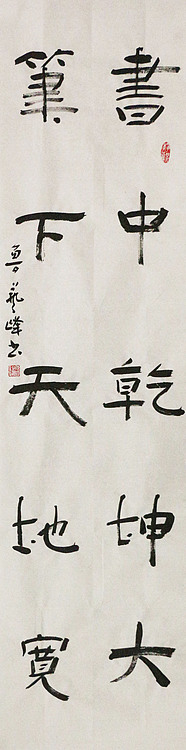 書中乾坤大
筆下天地寬
藝峰书